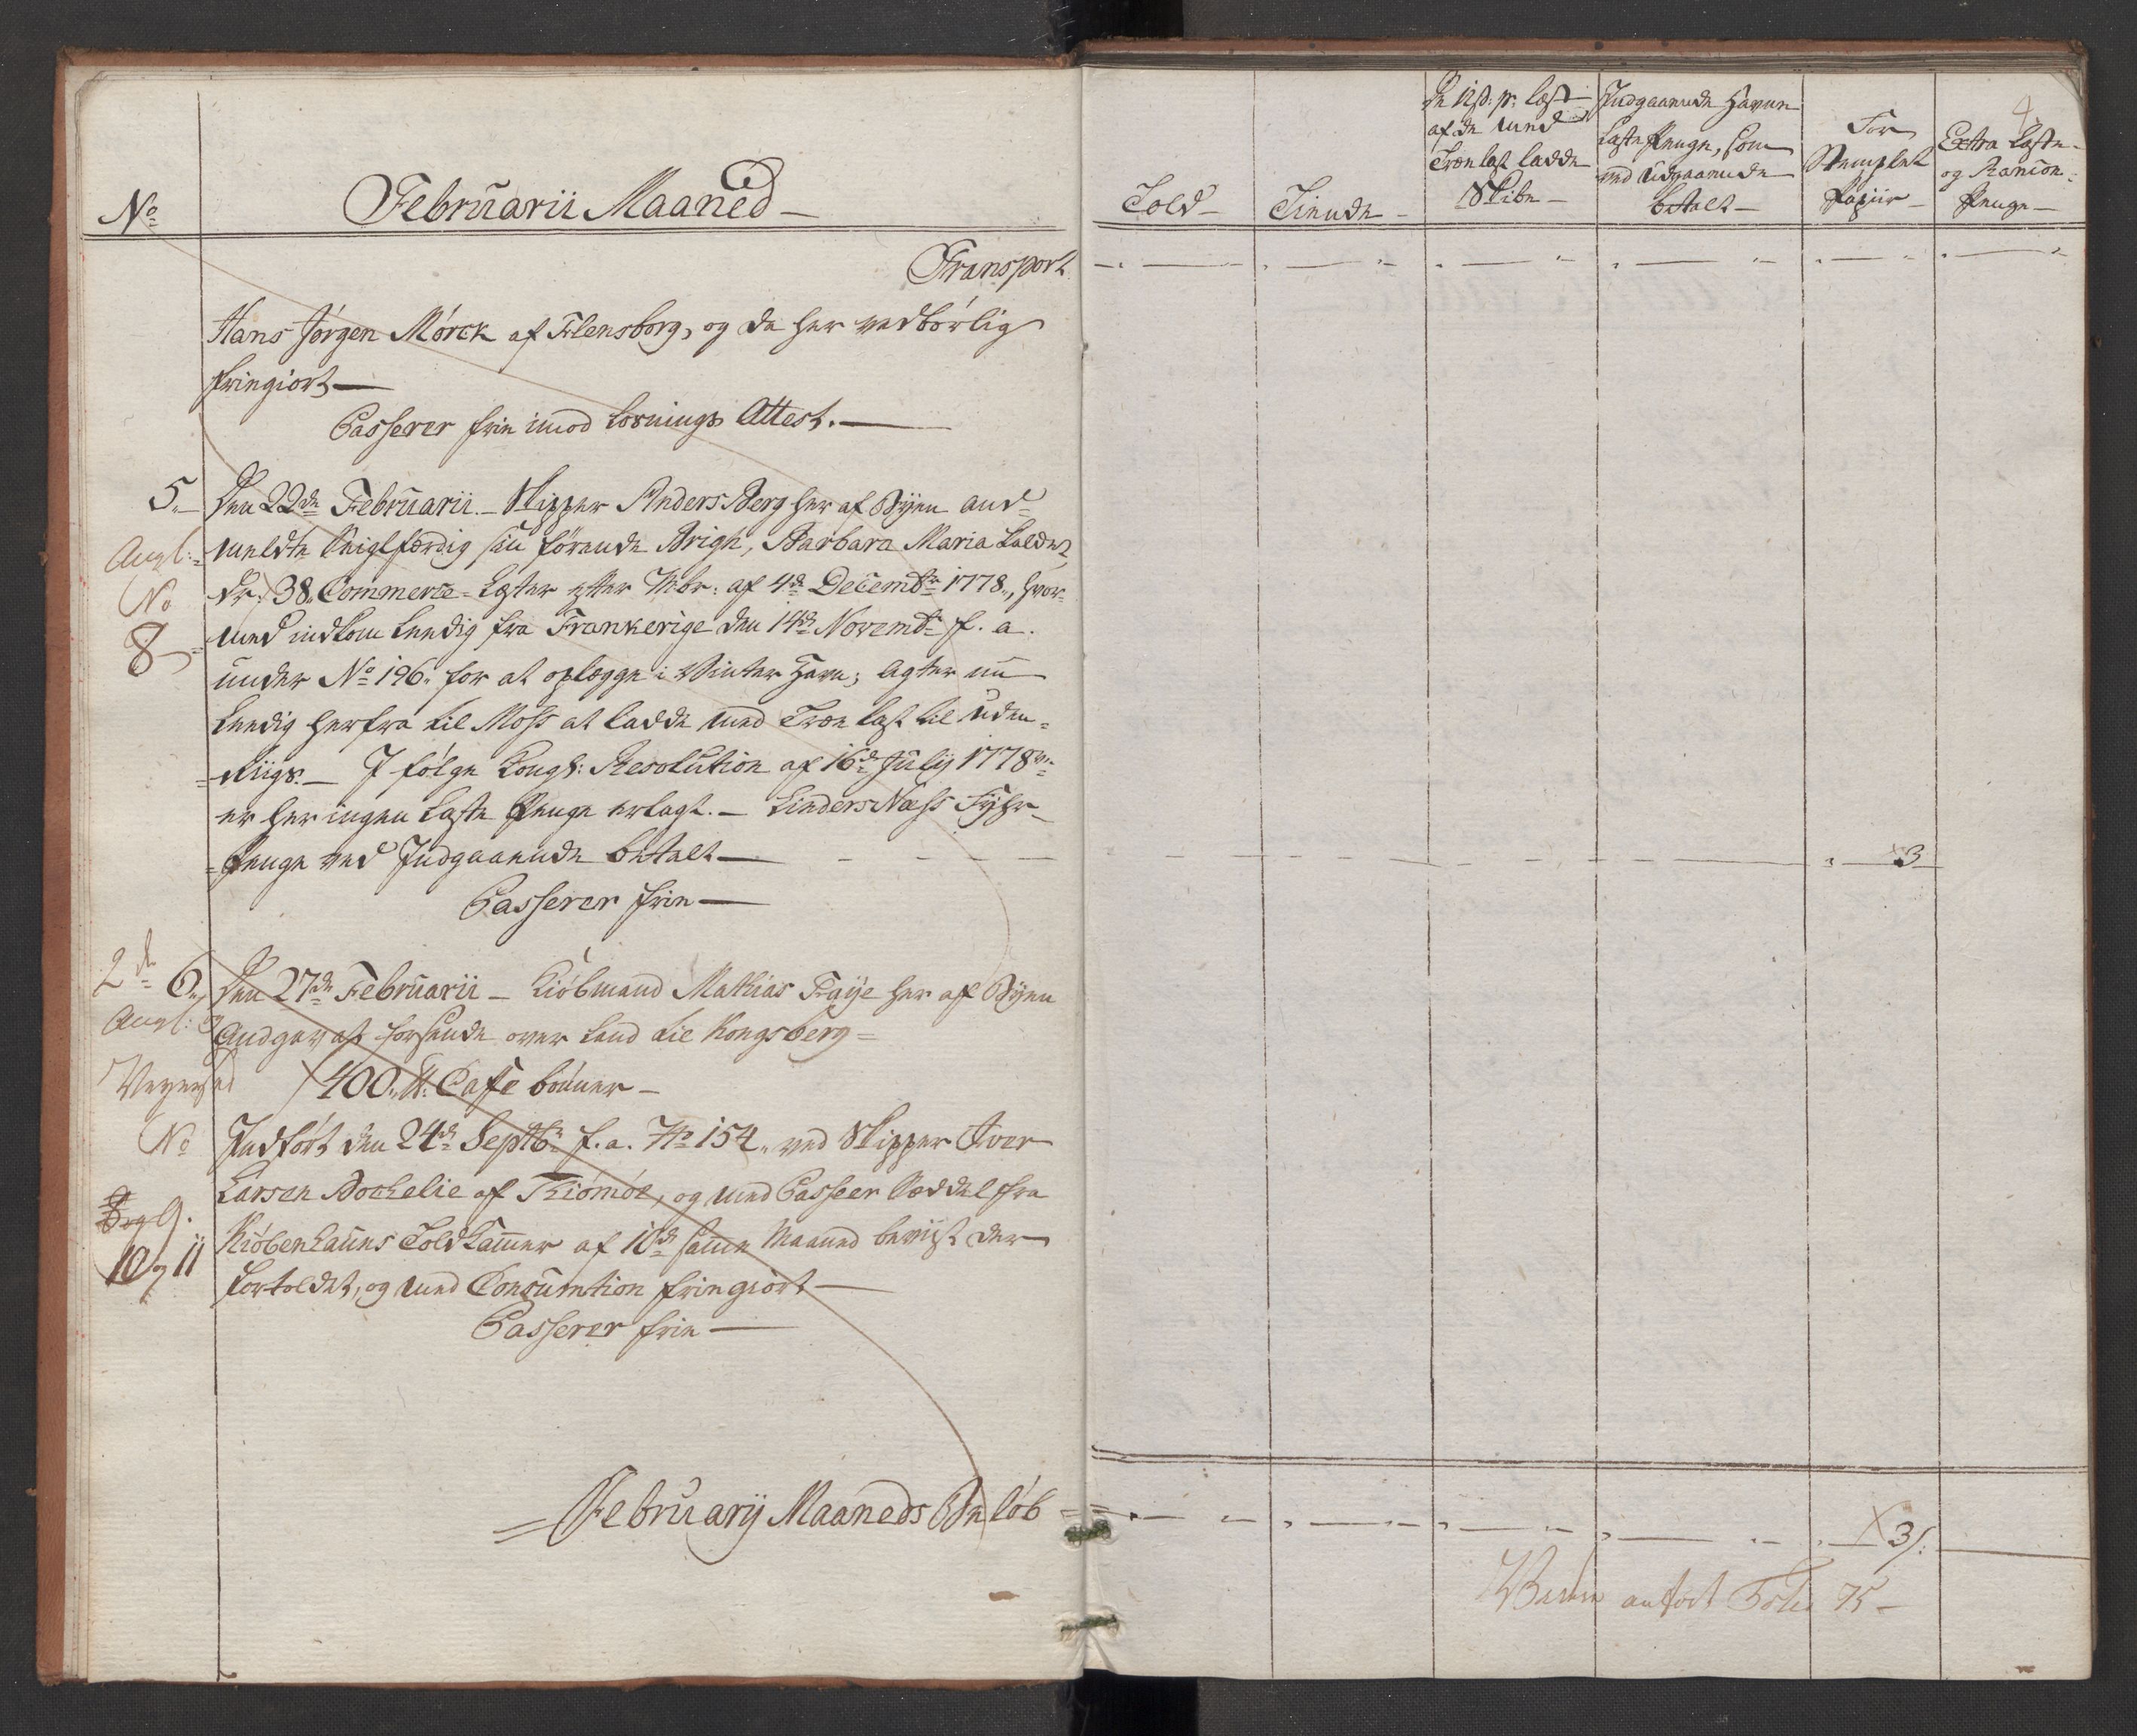 No
Februarii Maaned
Transport
Hans Jørgen Mørck af Flensborg, og da her vedbørlig
friegiort
Passerer frie imod Losnings Attest.
5. Den 22de Februarii. Skipper Anders Berg her af Byen an-
Angl: meldte Seiglfærdig sin førende Brigh, Barbara Maria kaldet,
No dr: 38 Commerce Læster efter Mbr: af 4de Decembr 1778, hvor-
8 med indkom leedig fra Frankerige den 14de Novembr f. a.
under No 196. for at oplægge i Vinter Havn; agter nu
leedig herfra til Moss at ladde med Træe last til Uden-
rigs. I følge Kongl: Resolution af 16de July 1778
er her ingen Læste Penge erlagt. Linders Næss Fyhr-
Penge ved Indgaaende betalt
Passerer frie
2de 6. Den 27de Februarii Kiøbmand Mathias Faye her af Byen
Angl: Andgav at forsende over Land til Kongsberg
400 lb: Caffe bønner
No Indført den 24de Septbr f. a. No 154. ved Skipper Iver
Larsen Bockelie af Tiømøe, og med Passeer Seddel fra
8 og 9. Kiøbenhauns Told Kammer af 10de samme Maaned beviist der
10 og 11 fortoldet, og med Consumtion friegiort
Passerer frie
Februarij Maaneds Beløb
4
Told
Tiende
De 12 s: pr: læst af de med Træe last ladde Skibe
Indgaaende Havne Læste Penge, som ved Udgaaende betalt
For Stemplet Papiir
Extra Læste- og Rancion- Penge
3
3 s:
anført Folio 75